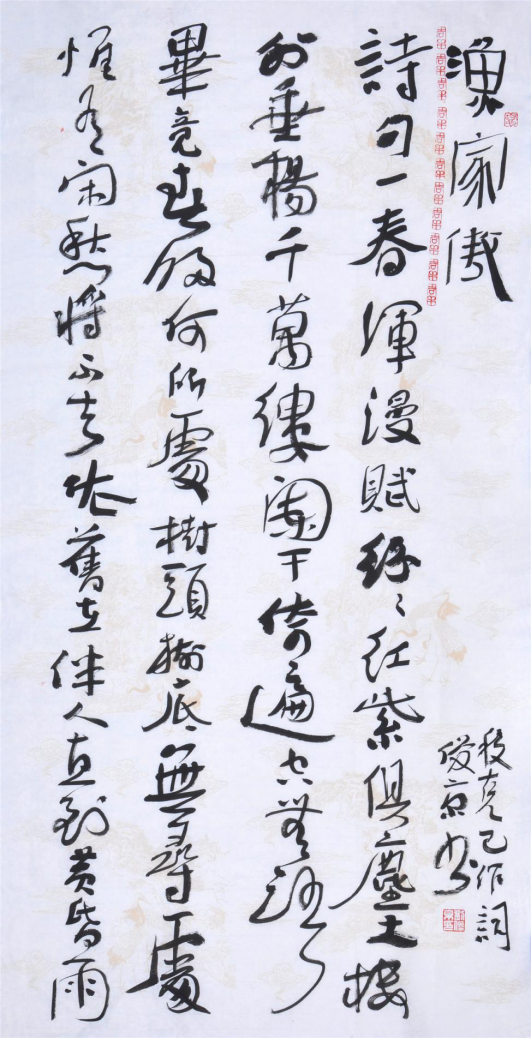 漁家傲
詩句一春渾漫賦紛〻紅紫俱塵土樓
外垂楊千萬縷闌干倚遍空無語
畢竟春歸何所處樹頭樹底無尋處
惟有闲愁將不去依舊伴人直到黄昏雨
段克己作詞
俊京书